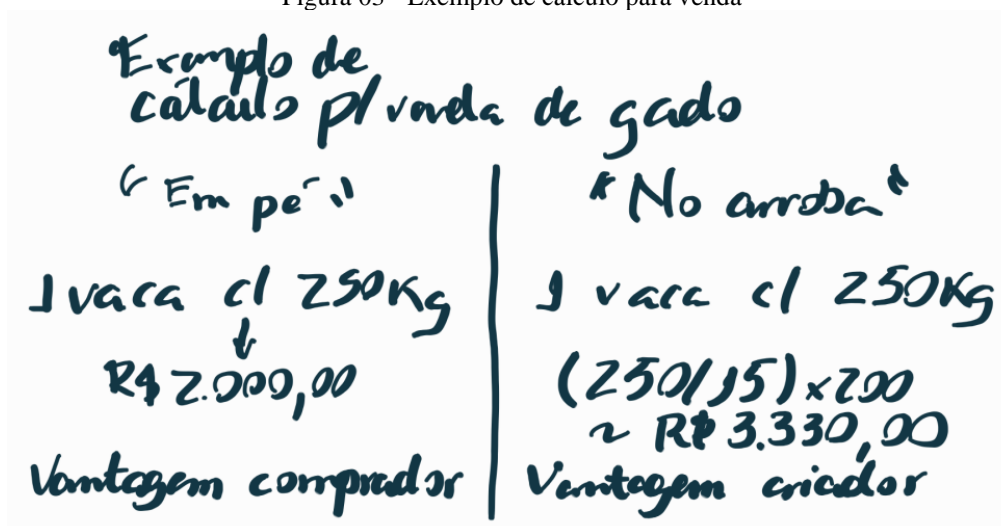 Figura 03 - Exemplo de cálculo para venda
Exemplo de
cálculo p/ venda de gado
"Em pé"
1 vaca c/ 250Kg
↓
R$ 2.000,00
Vantagem comprador
"No arroba"
1 vaca c/ 250Kg
(250/15)x200
~ R$ 3.330,00
Vantagem criador